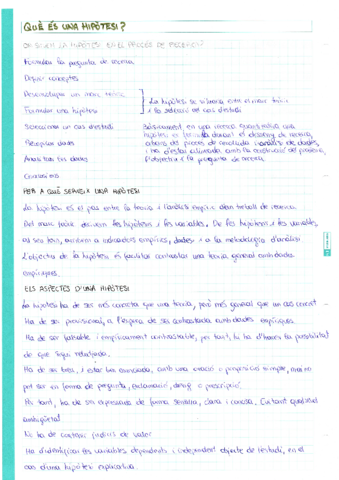 QUÈ ÉS UNA HIPÒTESI?
ON SITUEM LA HIPÒTESI EN EL PROCÉS DE RECERCA?
Formular la pregunta de recerca
Definir conceptes
Desenvolupar un marc teòric
Formular una hipòtesi
La hipòtesi se situaria entre el marc teòric
i la selecció del cas d'estudi
Seleccionar un cas d'estudi
Bàsicament en una recerca quantitativa una
hipòtesi és formula durant el disseny de recerca,
abans del procés de recollida i anàlisi de dades,
ha d'estar alineada amb la
objectiu i la pregunta de recerca.
Recopilar dades
Analitzar les dades
Conclusions
PER A QUÈ SERVEIX UNA HIPÒTESI
La hipòtesi és el pas entre la teoria i l'anàlisi empíric d'un treball de recerca.
Del marc teòric deriven les hipòtesis i les variables. De les hipòtesis i les variables,
al seu torn, als indicadors empírics, dades i a la metodologia d'anàlisi
L'objectiu de la hipòtesi és facilitar contrastar una teoria general amb dades
empíriques.
ELS ASPECTES D'UNA HIPÒTESI
La hipòtesi ha de ser més concreta que una teoria, però més general que un cas concret
Ha de ser provisional, a l'espera de ser contrastada amb dades empíriques.
Ha de ser falsable i empíricament contrastable, per tant, hi ha d'haver la possibilitat
de que sigui rebutjada.
Ha de ser breu i estar ben enunciada, amb una oració o proposició simple, mai no
pot ser en forma de pregunta, exclamació, desig o prescripció.
Per tant, ha de ser expressada de forma senzilla, clara i concisa. Evitant qualsevol
ambigüetat
No ha de contenir judicis de valor
Ha d'identificar les variables dependents i independent objecte de l'estudi, en el
cas d'una hipòtesi explicativa.